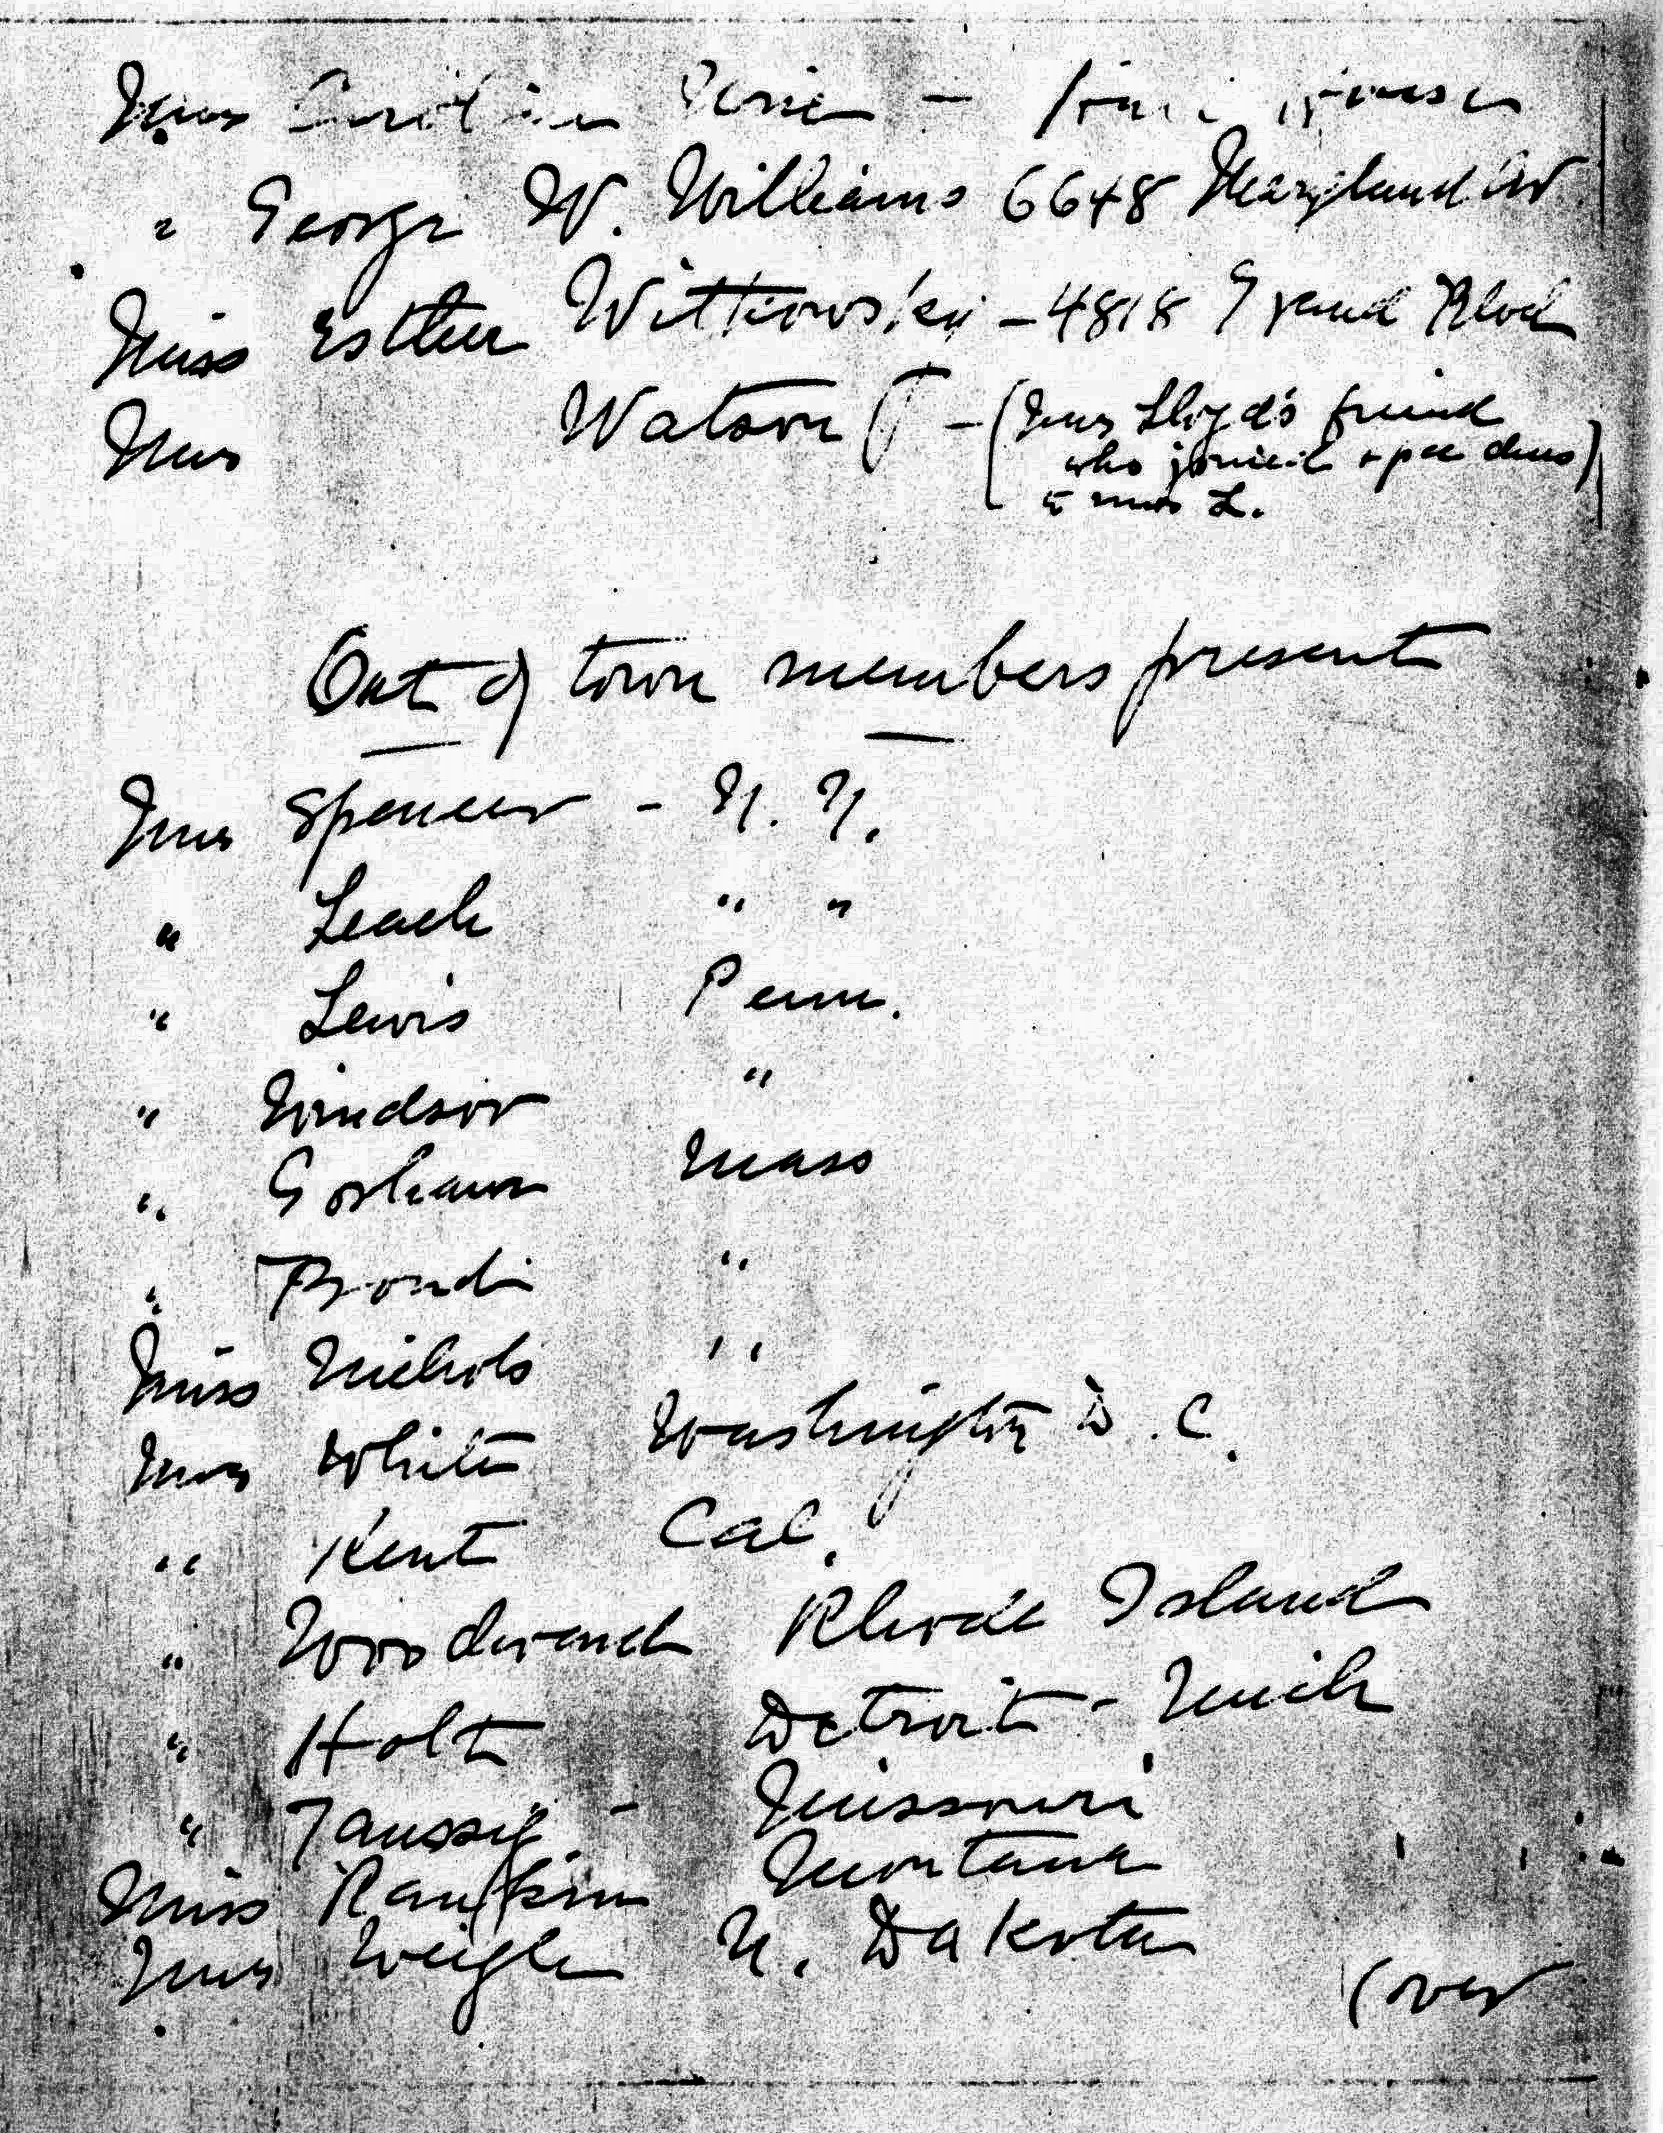 Mrs Caroline
" George W. Williams 6648 Maryland Av
Miss Esther Witkowsky - 4818 Grand Blvd
Mrs Watson - (Mrs Lloyd's friend
who joined & pd dues)
to Mrs L.
Out of town members present
Mrs Spencer - N. Y.
" Leach " "
" Lewis Penn.
" Windsor "
" Gorham Mass
" "
Miss Nichols "
Mrs White Washington D. C.
" Kent Cal.
" Woodward Rhode Island
" Holt Detroit - Mich
" Taussig - Missouri
Miss Rankin Montana
Mrs Weigle N. Dakota
(over